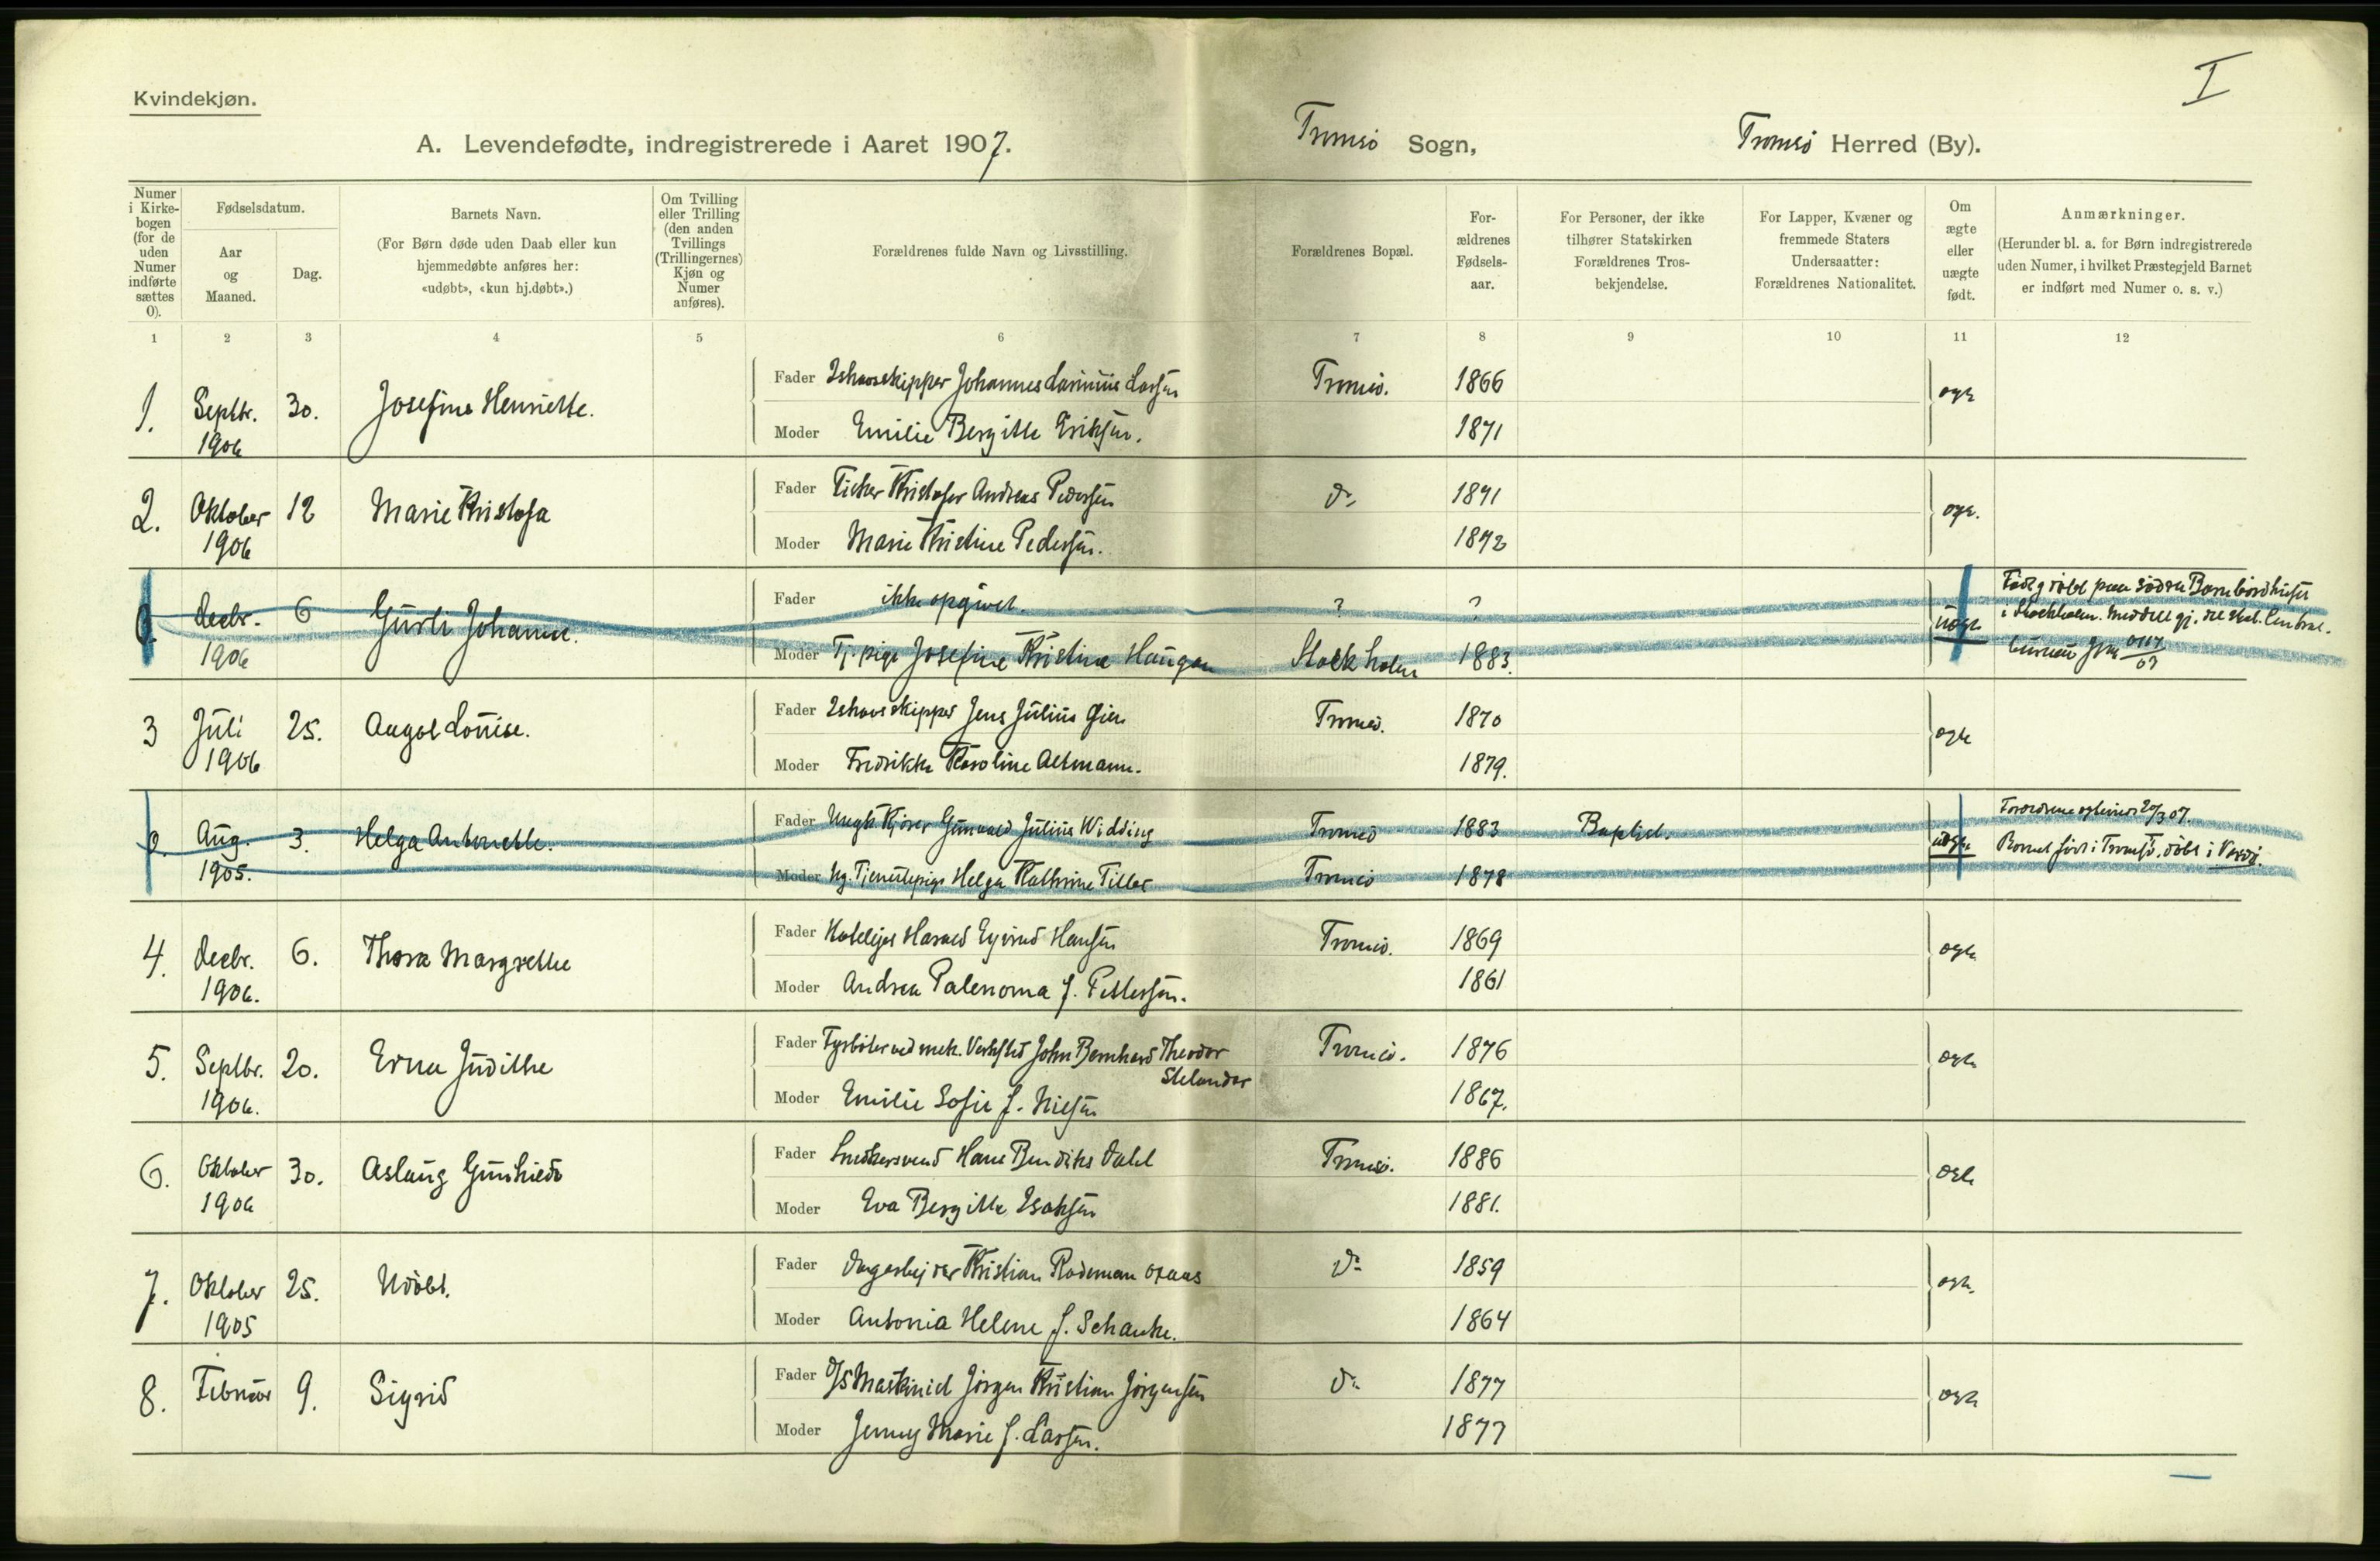 I
Kvindekjøn.
A. Levendefødte, indregistrerede i Aaret 1907. Tromsø Sogn, Tromsø Herred (By).
Numer i Kirkebogen (for de uden Numer indførte sættes 0).
Fødselsdatum.
Aar og Maaned.
Dag.
Barnets Navn.
(For Børn døde uden Daab eller kun
hjemmedøbte anføres her:
«udøbt», «kun hj.døbt».)
Om Tvilling
eller Trilling
(den anden
Tvillings
(Trillingernes)
Kjøn og
Numer
anføres).
Forældrenes fulde Navn og Livsstilling.
Forældrenes Bopæl.
For-
ældrenes
Fødsels-
aar.
For Personer, der ikke
tilhører Statskirken
Forældrenes Tros-
bekjendelse.
For Lapper, Kvæner og
fremmede Staters
Undersaatter:
Forældrenes Nationalitet.
Om
ægte
eller
uægte
født.
Anmærkninger.
(Herunder bl. a. for Børn indregistrerede
uden Numer, i hvilket Præstegjeld Barnet
er indført med Numer o. s. v.)
1 2 3 4 5 6 7 8 9 10 11 12
1. Septbr. 1906 30. Josefine Henriette.
Fader Ishavsskipper Johannes Larsen Tromsø. 1866 ægte
Moder Emilie Bergitte Eriksen. 1871
2. Oktober 1906 12 Marie Kristofa
Fader Fisker Kristofer Andreas Pedersen do 1871 ægte.
Moder Marie Kristine Pedersen. 1872
0. Decbr. 1906 6 Gurli Johanne.
Fader ikke opgivet. ? ? uægte
Moder Tj. pige Josefine Kristine Haugan Stockholm 1883.
Født og døbt paa Södra Barnbördshuset
i Stockholm. Meddelt gj. det stat. Central-
bureau
3 Juli 1906 25. Aagot Louise.
Fader Ishavsskipper Jens Julius Tromsø. 1870 ægte
Moder Fredrikke Karoline Altmann. 1879.
0. Aug. 1905. 3. Helga Antonette.
Fader Ungk. Kjører Gunvald Julius Widding Tromsø 1883 Baptist. uægte
Moder Ug. Tjenestepige Helga Kathrine Tiller Tromsø 1878
Forældrene egteviet 20/3 07.
Barnet født i Tromsø, døbt i Vardø.
4. Decbr. 1906. 6. Thora Margrethe
Fader Hotelejer Harald Eyvind Hansen Tromsø. 1869 ægte
Moder Andrea Palenoma f. Pettersen. 1861
5. Septbr. 1906. 20. Erna Judithe
Fader Fyrbøter ved mek. Verksted John Bernhard Theodor Stelander Tromsø. 1876 ægte
Moder Emilie Sofie f. Nilsen 1867.
6. Oktober 1906 30. Aslaug Gunhild
Fader Snedkersvend Hans Bendiks Dahl Tromsø. 1886 ægte
Moder Eva Bergitte Isaksen 1881.
7. Oktober 1905 25. Udøbt.
Fader Dagarbejder Kristian Rodeman do 1859 ægte.
Moder Antonia Helene f. Schanke. 1864
8. Februar 9. Sigrid
Fader D/S Maskinist Jørgen Kristian Jørgensen do 1877 ægte
Moder Jenny Marie f. Larsen. 1877